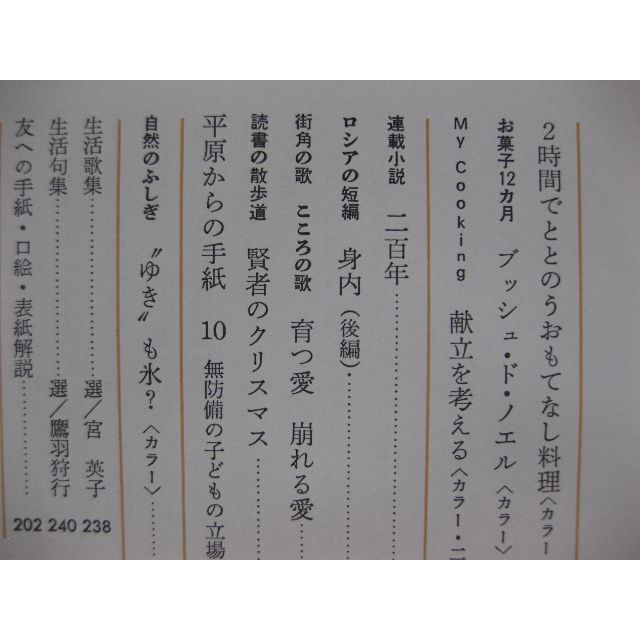 2時間でととのうおもてなし料理〈カラー
お菓子12カ月 ブッシュ・ド・ノエル〈カラー〉
My Cooking 献立を考える〈カラー・二
連載小説 二百年…………
ロシアの短編 身内(後編)…………
街角の歌 こころの歌 育つ愛 崩れる愛…………
読書の散歩道 賢者のクリスマス…………
平原からの手紙 10 無防備の子どもの立場
自然のふしぎ 〝ゆき〟も氷?〈カラー〉…………
生活歌集…………選/宮 英子 238
生活句集…………選/鷹羽狩行 240
友への手紙・口絵・表紙解説………… 202